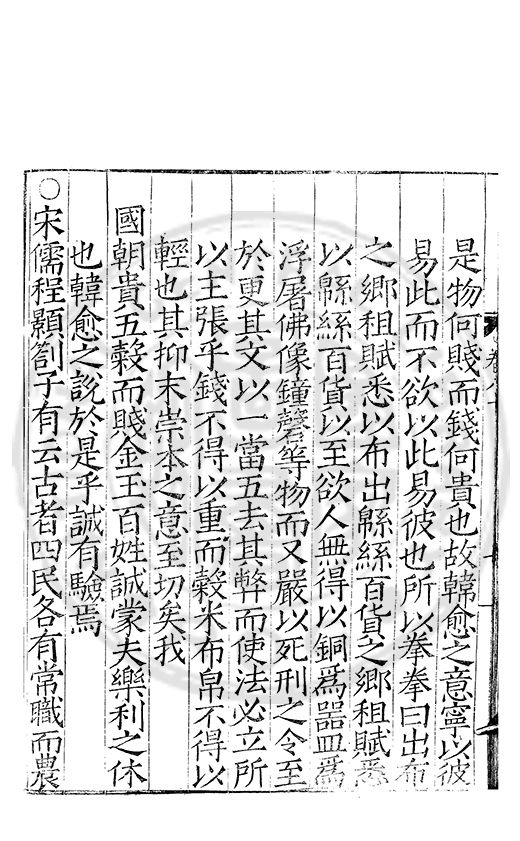 是物何賤而錢何貴也故韓愈之意寧以彼
易此而不欲以此易彼也所以拳拳曰出布
之鄉租賦悉以布出緜絲百貨之鄉租賦悉
以緜絲百貨以至欲人無得以銅爲器皿爲
浮屠佛像鐘磬等物而又嚴以死刑之令至
於更其文以一當五去其弊而使法必立所
以主張乎錢不得以重而穀米布帛不得以
輕也其抑末崇本之意至切矣我
國朝貴五穀而賤金玉百姓誠蒙夫樂利之休
也韓愈之說於是乎誠有驗焉
○宋儒程顥劄子有云古者四民各有常職而農